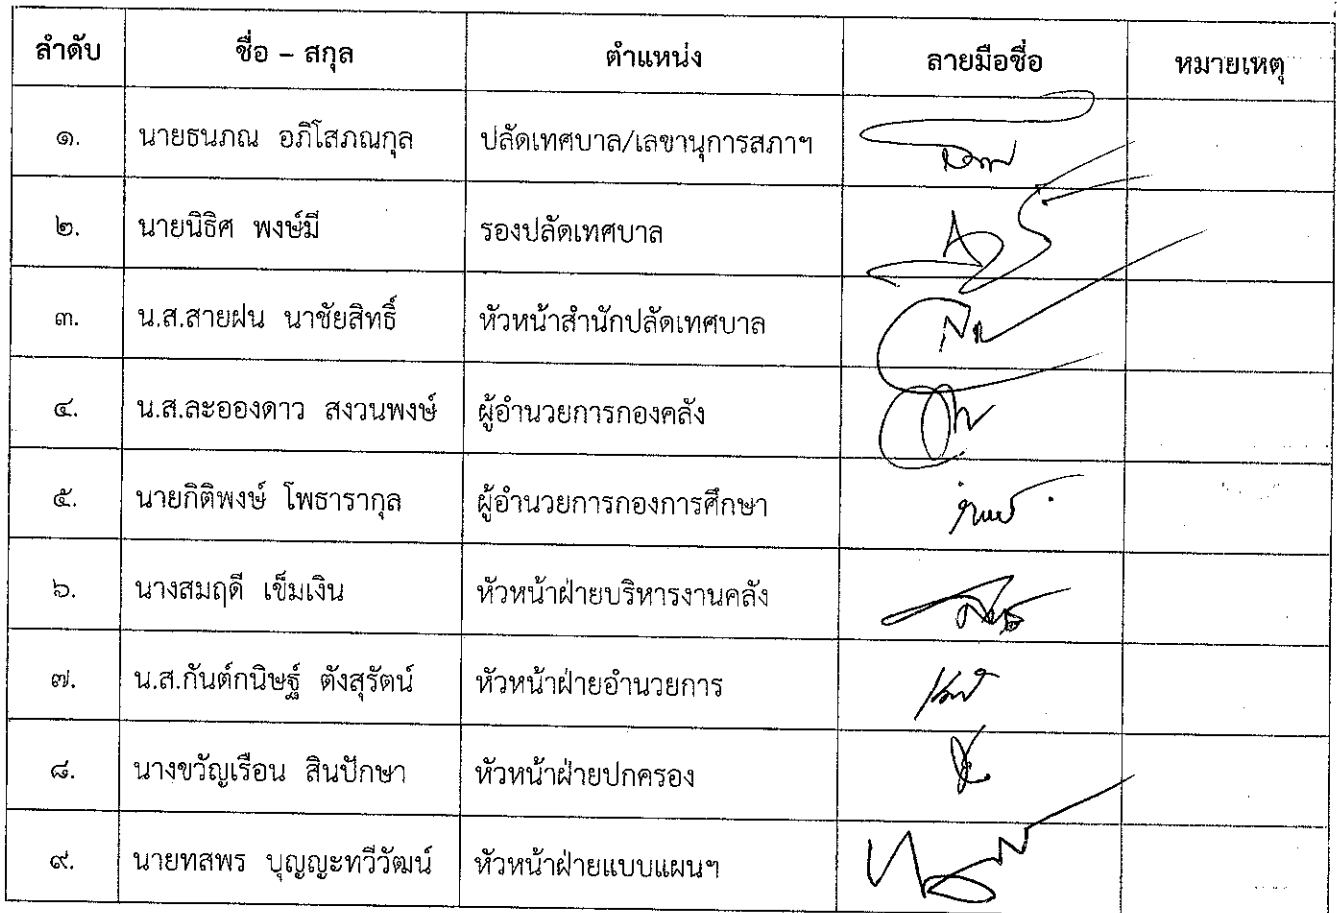 ลำดับ ชื่อ – สกุล ตำแหน่ง ลายมือชื่อ หมายเหตุ
๑. นายธนภณ อภิโสภณกุล ปลัดเทศบาล/เลขานุการสภาฯ
๒. นายนิธิศ พงษ์มี รองปลัดเทศบาล
๓. น.ส.สายฝน นาชัยสิทธิ์ หัวหน้าสำนักปลัดเทศบาล
๔. น.ส.ละอองดาว สงวนพงษ์ ผู้อำนวยการกองคลัง
๕. นายกิติพงษ์ โพธารากุล ผู้อำนวยการกองการศึกษา
๖. นางสมฤดี เข็มเงิน หัวหน้าฝ่ายบริหารงานคลัง
๗. น.ส.กันต์กนิษฐ์ ตังสุรัตน์ หัวหน้าฝ่ายอำนวยการ
๘. นางขวัญเรือน สินปักษา หัวหน้าฝ่ายปกครอง
๙. นายทสพร บุญญะทวีวัฒน์ หัวหน้าฝ่ายแบบแผนฯ